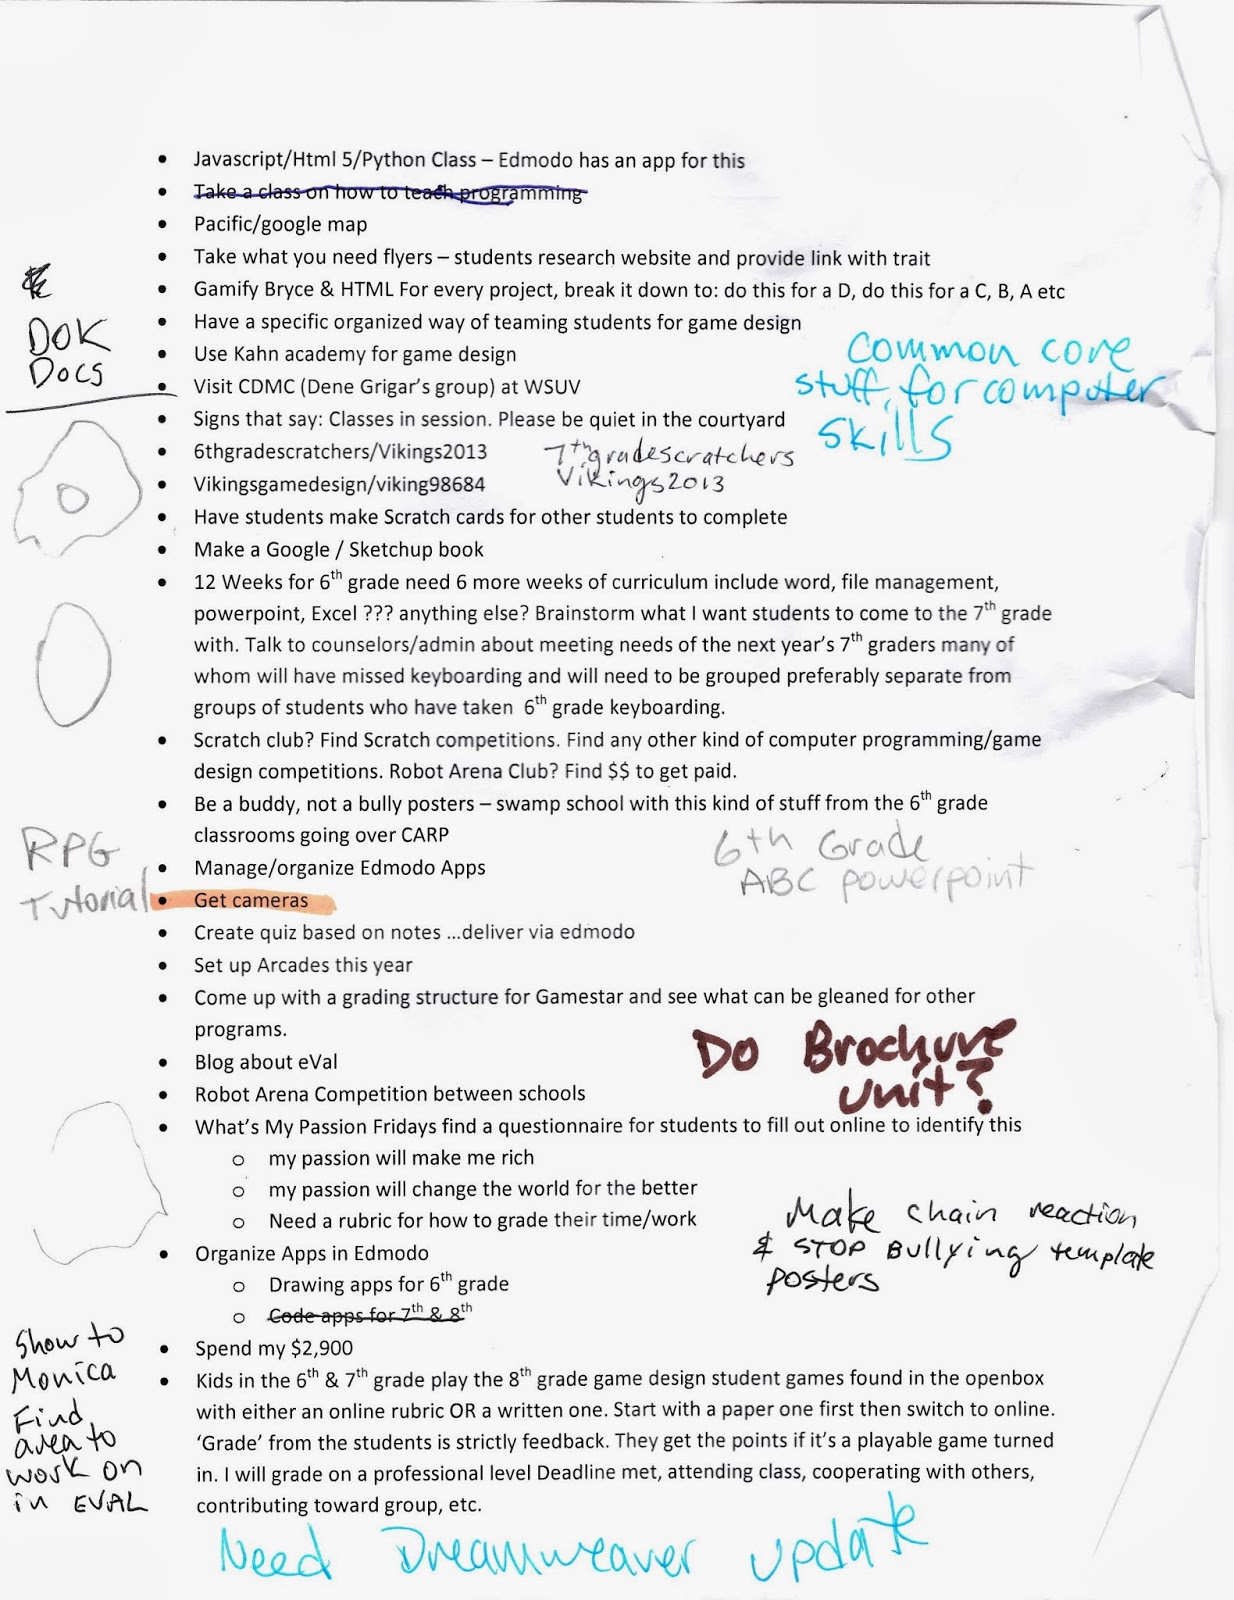 • Javascript/Html 5/Python Class – Edmodo has an app for this
• Take a class on how to teach programming
• Pacific/google map
• Take what you need flyers – students research website and provide link with trait
• Gamify Bryce & HTML For every project, break it down to: do this for a D, do this for a C, B, A etc
• Have a specific organized way of teaming students for game design
DOK
Docs
• Use Kahn academy for game design
• Visit CDMC (Dene Grigar's group) at WSUV
Common core
stuff for computer
skills
• Signs that say: Classes in session. Please be quiet in the courtyard
• 6thgradescratchers/Vikings2013
7th gradescratchers
Vikings2013
• Vikingsgamedesign/viking98684
• Have students make Scratch cards for other students to complete
• Make a Google / Sketchup book
• 12 Weeks for 6th grade need 6 more weeks of curriculum include word, file management,
powerpoint, Excel ??? anything else? Brainstorm what I want students to come to the 7th grade
with. Talk to counselors/admin about meeting needs of the next year's 7th graders many of
whom will have missed keyboarding and will need to be grouped preferably separate from
groups of students who have taken 6th grade keyboarding.
• Scratch club? Find Scratch competitions. Find any other kind of computer programming/game
design competitions. Robot Arena Club? Find $$ to get paid.
• Be a buddy, not a bully posters – swamp school with this kind of stuff from the 6th grade
classrooms going over CARP
RPG
Tutorial
6th Grade
ABC powerpoint
• Manage/organize Edmodo Apps
• Get cameras
• Create quiz based on notes …deliver via edmodo
• Set up Arcades this year
• Come up with a grading structure for Gamestar and see what can be gleaned for other
programs.
Do Brochure
unit?
• Blog about eVal
• Robot Arena Competition between schools
• What's My Passion Fridays find a questionnaire for students to fill out online to identify this
o my passion will make me rich
o my passion will change the world for the better
o Need a rubric for how to grade their time/work
Make chain reaction
& STOP Bullying template
posters
• Organize Apps in Edmodo
o Drawing apps for 6th grade
o Code apps for 7th & 8th
Show to
Monica
Find
area to
work on
in EVAL
• Spend my $2,900
• Kids in the 6th & 7th grade play the 8th grade game design student games found in the openbox
with either an online rubric OR a written one. Start with a paper one first then switch to online.
'Grade' from the students is strictly feedback. They get the points if it's a playable game turned
in. I will grade on a professional level Deadline met, attending class, cooperating with others,
contributing toward group, etc.
Need Dreamweaver update